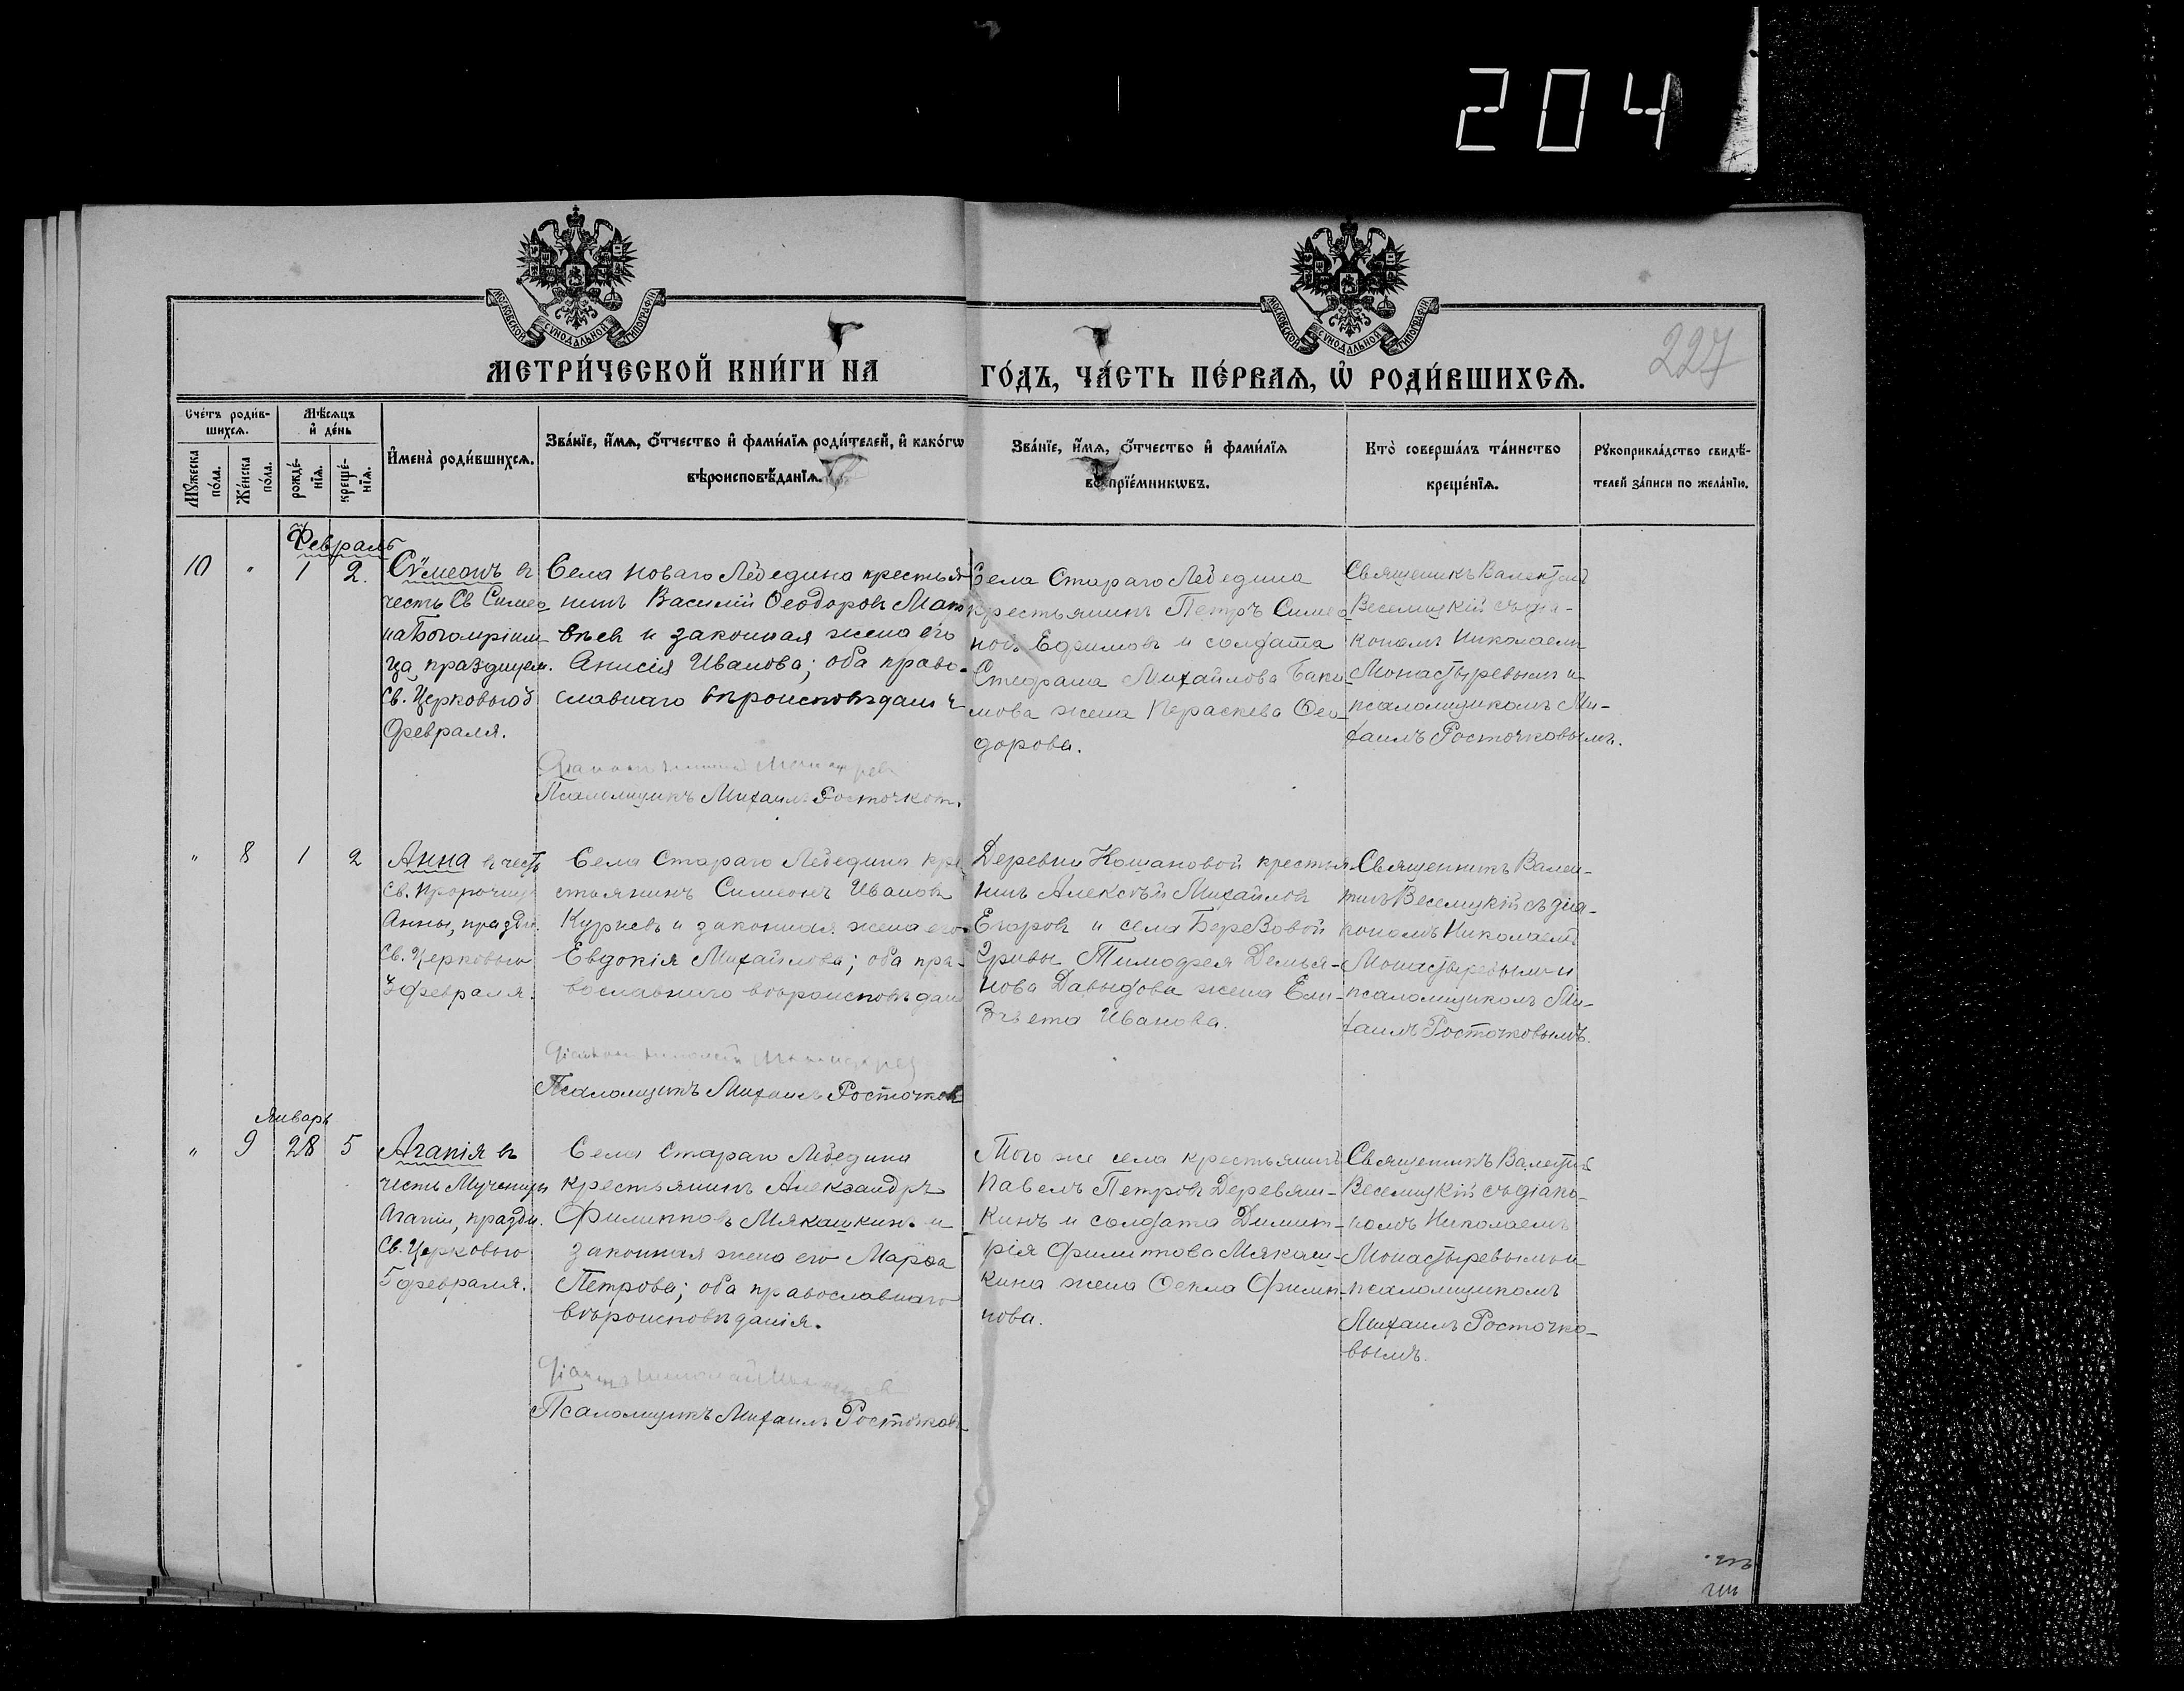 204
МОСКОВСКОЙ СѴНОДАЛЬНОЙ ТИПОГРАФІИ
МОСКОВСКОЙ СѴНОДАЛЬНОЙ ТИПОГРАФІИ
227
МЕТРИ́ЧЕСКОЙ КНИ́ГИ НА ГО́ДЪ, ЧА́СТЬ ПЕ́РВАѦ, Ѡ РОДИ́ВШИХСѦ.
Сче́тъ роди́в-
шихсѧ.
Мꙋжеска по́ла.
Же́нска по́ла.
Мѣ́сѧцъ
и҆ де́нь
рожде́-
нїѧ.
креще́-
нїѧ.
И҆мена̀ роди́вшихсѧ.
Зва́нїе, и҆́мѧ, ѻ҆́тчество и҆ фами́лїѧ роди́телей, и҆ како́гѡ
вѣроисповѣ́данїѧ.
Зва́нїе, и҆́мѧ, ѻ҆́тчество и҆ фами́лїѧ
воспрїе́мникѡвъ.
Кто̀ соверша́лъ та́инство
креще́нїѧ.
Рꙋкоприкла́дство свидѣ́-
телей за́писи по жела́нїю.
Февраль
10 " 1 2.
Сѷмеонъ въ
честь Св Симео
на Богопріим-
ца, празднуем.
Св. Церковью 3
Февраля.
Села Новаго Лебедина крестья
нинъ Василій Ѳеодоровъ Мат
вѣевъ и законная жена его
Анисія Иванова; оба право-
славнаго вѣроисповѣданія
Псаломщикъ Михаилъ Росточковъ.
Села Стараго Лебедина
крестьянинъ Петръ Симео
новъ Ефимовъ и солдата
Стефана Михайлова Баки-
мова жена Параскева Ѳео-
дорова.
Священникъ Валентинъ
Веселицкій съ діа-
кономъ Николаемъ
Монастыревымъ и
псаломщикомъ Ми-
хаилъ Росточковымъ.
" 8 1 2
Анна въ честь
Св. Пророчицы
Анны, праздн.
Св. Церковью
3 февраля.
Села Стараго Лебедина кре
стьянинъ Симеонъ Ивановъ
и законная жена его
Евдокія Михайлова; оба пра-
вославнаго вѣроисповѣдан
Псаломщикъ Михаилъ Росточковъ
Деревни Кошановой крестья-
нинъ Алексѣй Михайловъ
Егоровъ и села Березовой
Гривы Тимофея Демья-
нова Давыдова жена Ели-
завета Иванова.
Священникъ Вален-
тинъ Веселицкій съ діа-
кономъ Николаемъ
Монастыревымъ и
псаломщикомъ Ми-
хаилъ Росточковымъ.
Январь
" 9 28 5
Агапія въ
честь Мученицы
Агапіи, праздн.
Св. Церковью
5 февраля.
Села Стараго Лебедина
крестьянинъ Александръ
Филипповъ Мякашкинъ и
законная жена его Марѳа
Петрова; оба православнаго
вѣроисповѣданія.
Псаломщикъ Михаилъ Росточковъ
Того же села крестьянинъ
Павелъ Петровъ Деревяш-
кинъ и солдата Димит-
рія Филиппова Мякаш-
кина жена Ѳекла Филип-
пова.
Священникъ Валентинъ
Веселицкій съ діако-
номъ Николаемъ
Монастыревымъ и
псаломщикомъ
Михаилъ Росточко-
вымъ.